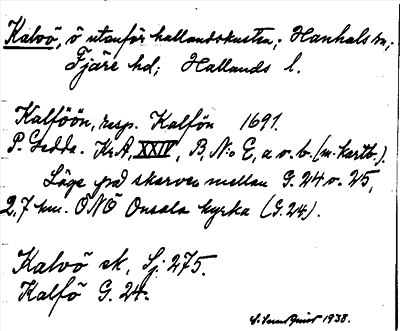 Kalvö, ö utanför hallandskusten; Hanhals sn;
Fjäre hd; Hallands l.
Kalföön, resp. Kalfön 1691.
P. Gedda. KrA, XXIV, B, No E, a o. b. (m. kartb.).
Läge på skarven mellan G. 24 o. 25,
2,7 km. ÖNÖ Onsala kyrka (G. 24).
Kalvö ek, Sj. 275.
Kalfö G. 24.
1938.